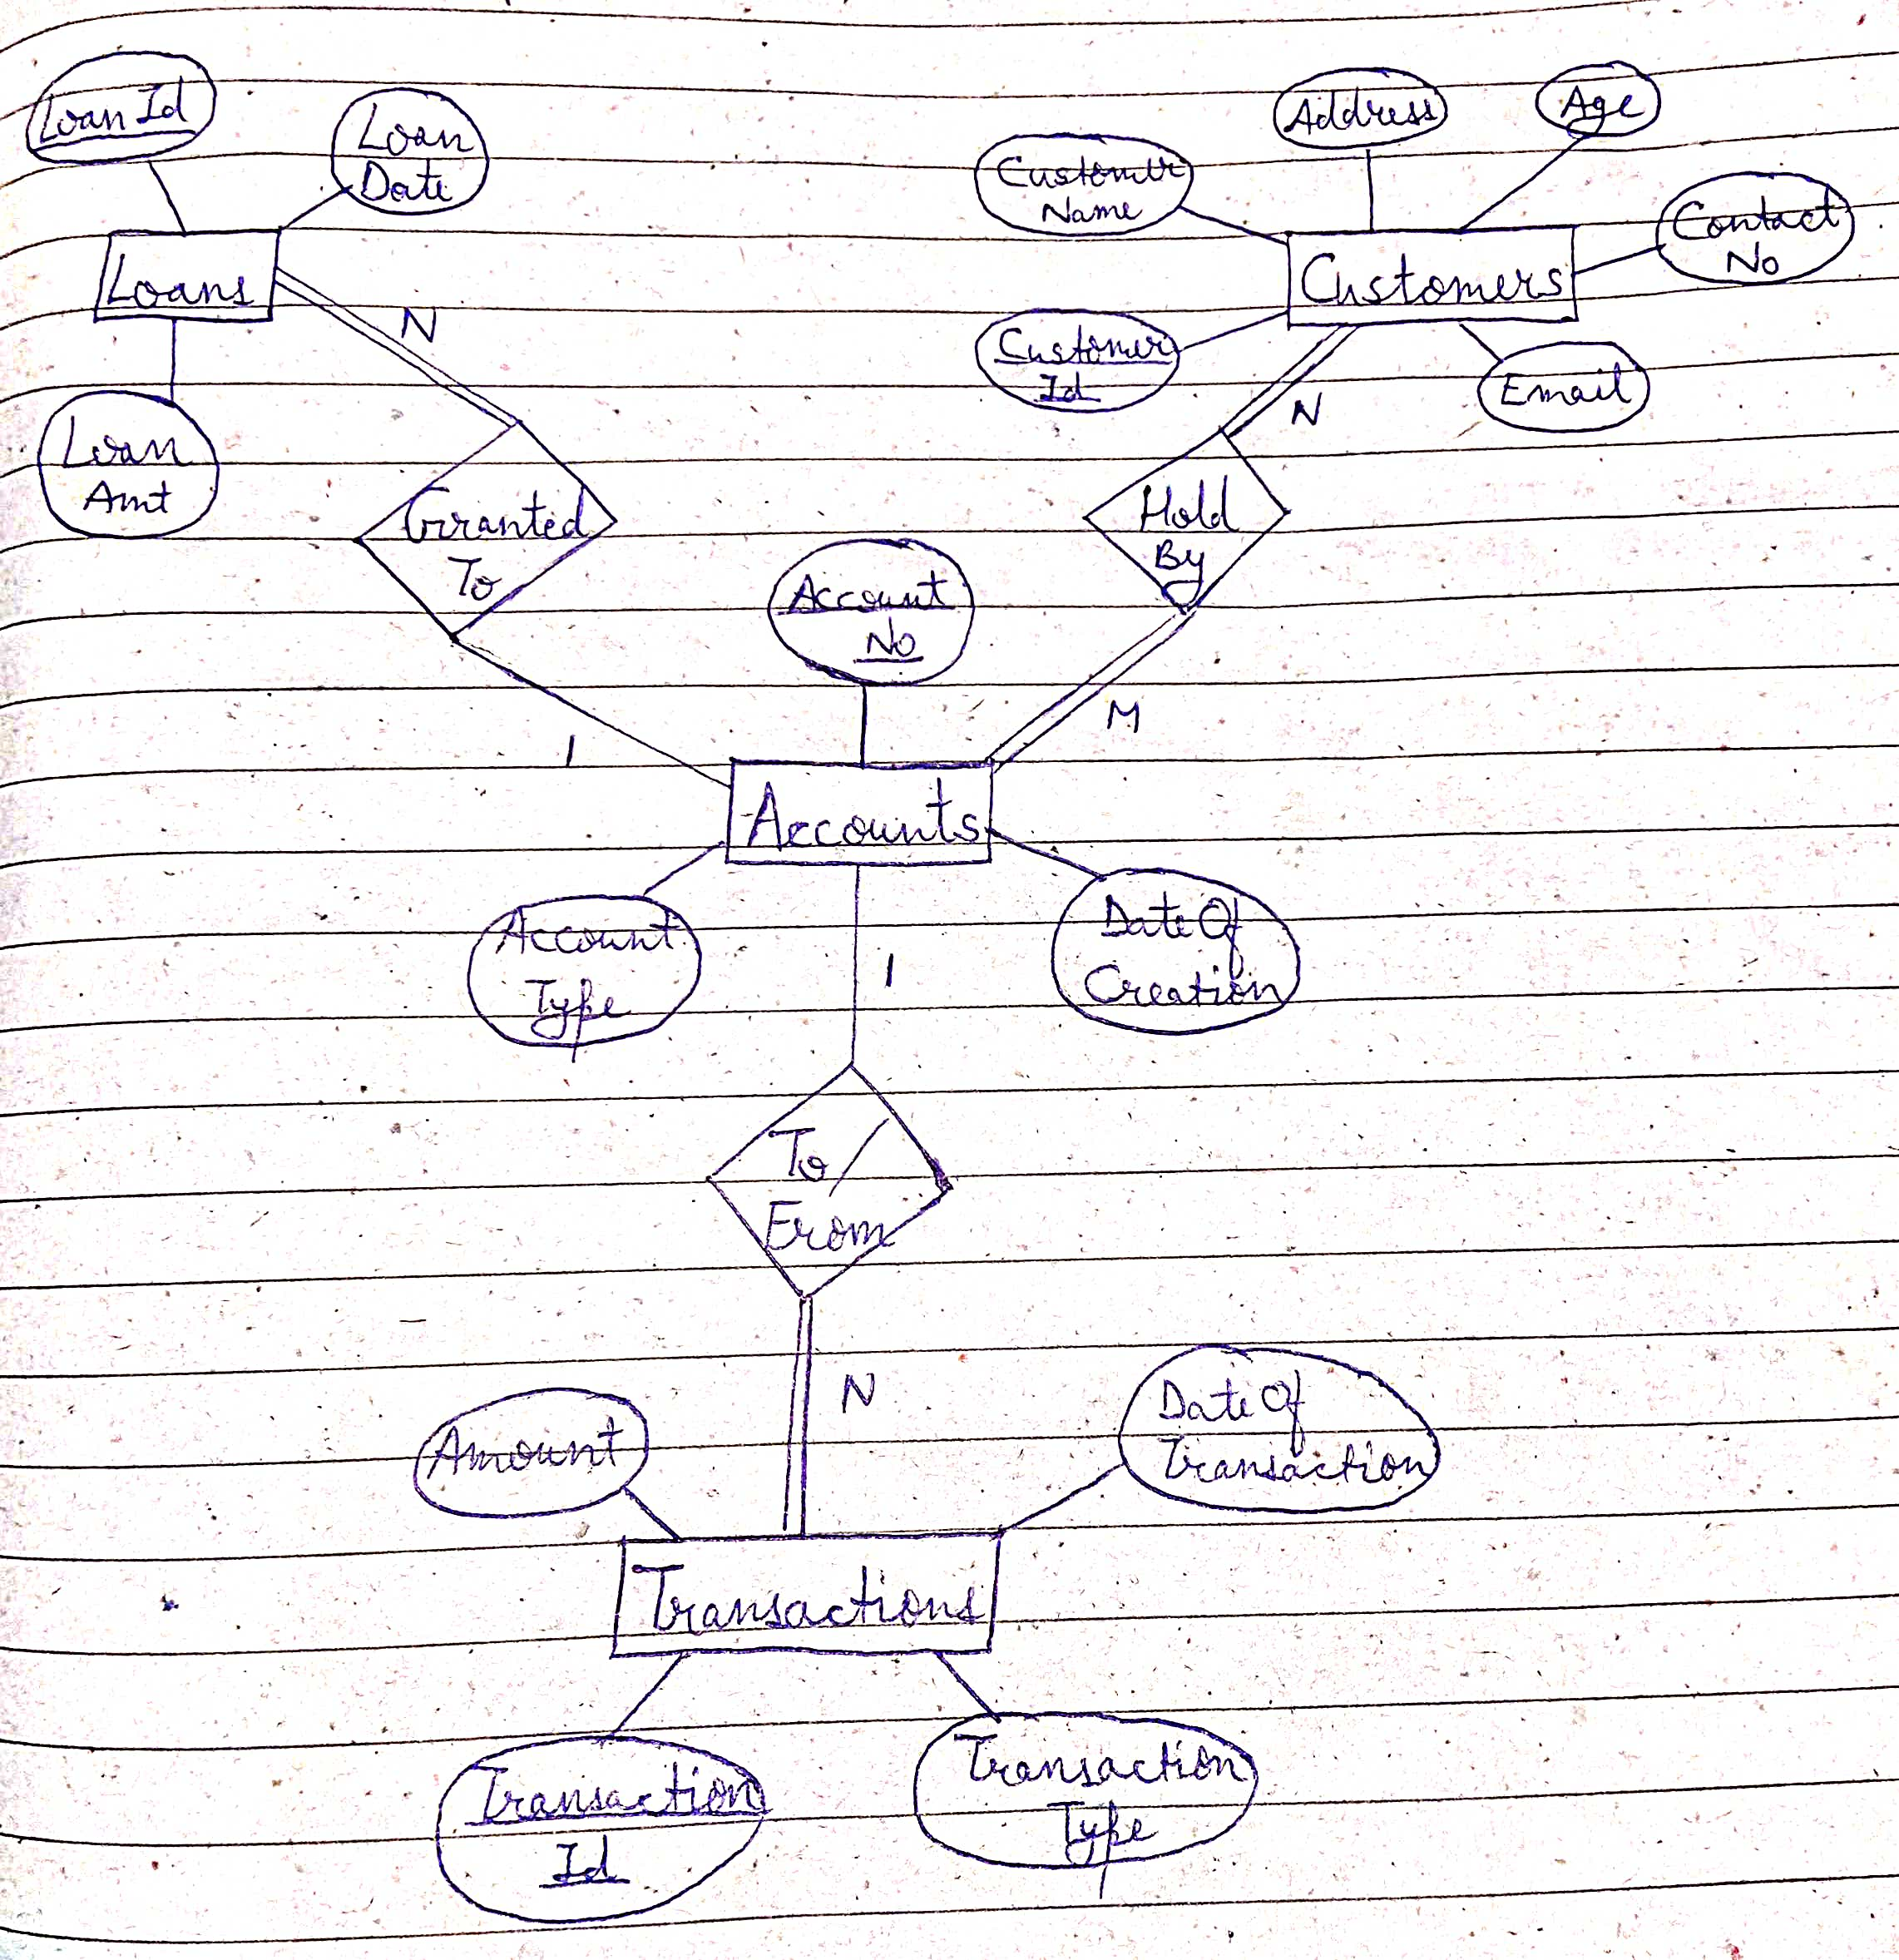 Loan Id
Loan
Date
Address
Age
Customer
Name
Contact
No
Loans
Customers
N
Customer
Id
Email
N
Loan
Amt
Granted
To
Hold
By
Account
No
M
1
Accounts
Account
Type
Date Of
Creation
1
To/
From
N
Amount
Date Of
Transaction
Transactions
Transaction
Id
Transaction
Type